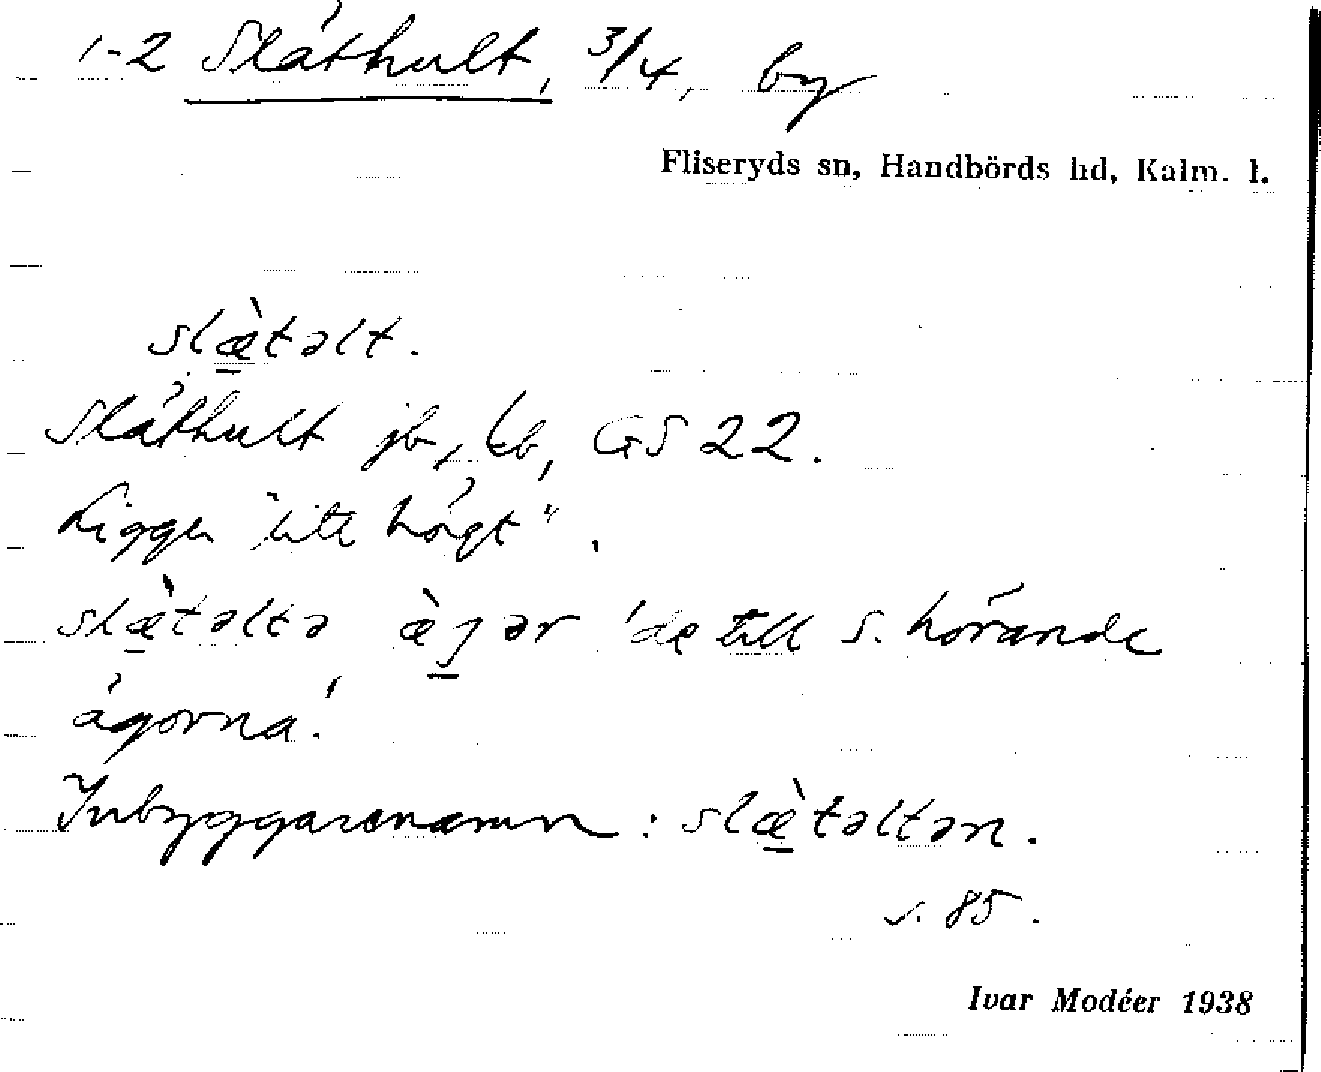 1-2 Släthult, 3/4, by
Fliseryds sn, Handbörds hd, Kalm. l.
slæ̀təlt.
Släthult jb, kb, GS 22.
Ligger "lite högt".
slæ̀təltə æ̀gər 'de till S. hörande
ägorna'.
Inbyggarenamn: slæ̀təltən.
s. 85.
Ivar Modéer 1938